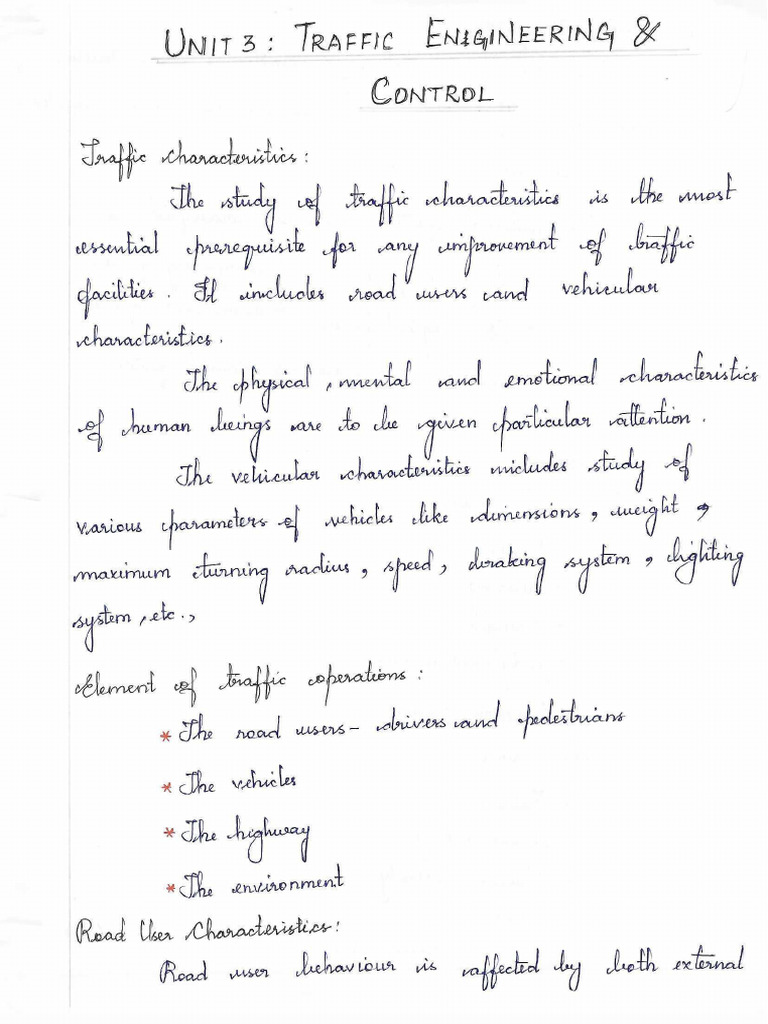 UNIT 3 : TRAFFIC ENGINEERING &
CONTROL
Traffic characteristics :
The study of traffic characteristics is the most
essential prerequisite for any improvement of traffic
facilities. It includes road users and vehicular
characteristics.
The physical, mental and emotional characteristics
of human beings are to be given particular attention.
The vehicular characteristics includes study of
various parameters of vehicles like dimensions, weight,
maximum turning radius, speed, braking system, lighting
system, etc.,
Element of traffic operations :
* The road users - drivers and pedestrians
* The vehicles
* The highway
* The environment
Road User Characteristics :
Road user behaviour is affected by both external